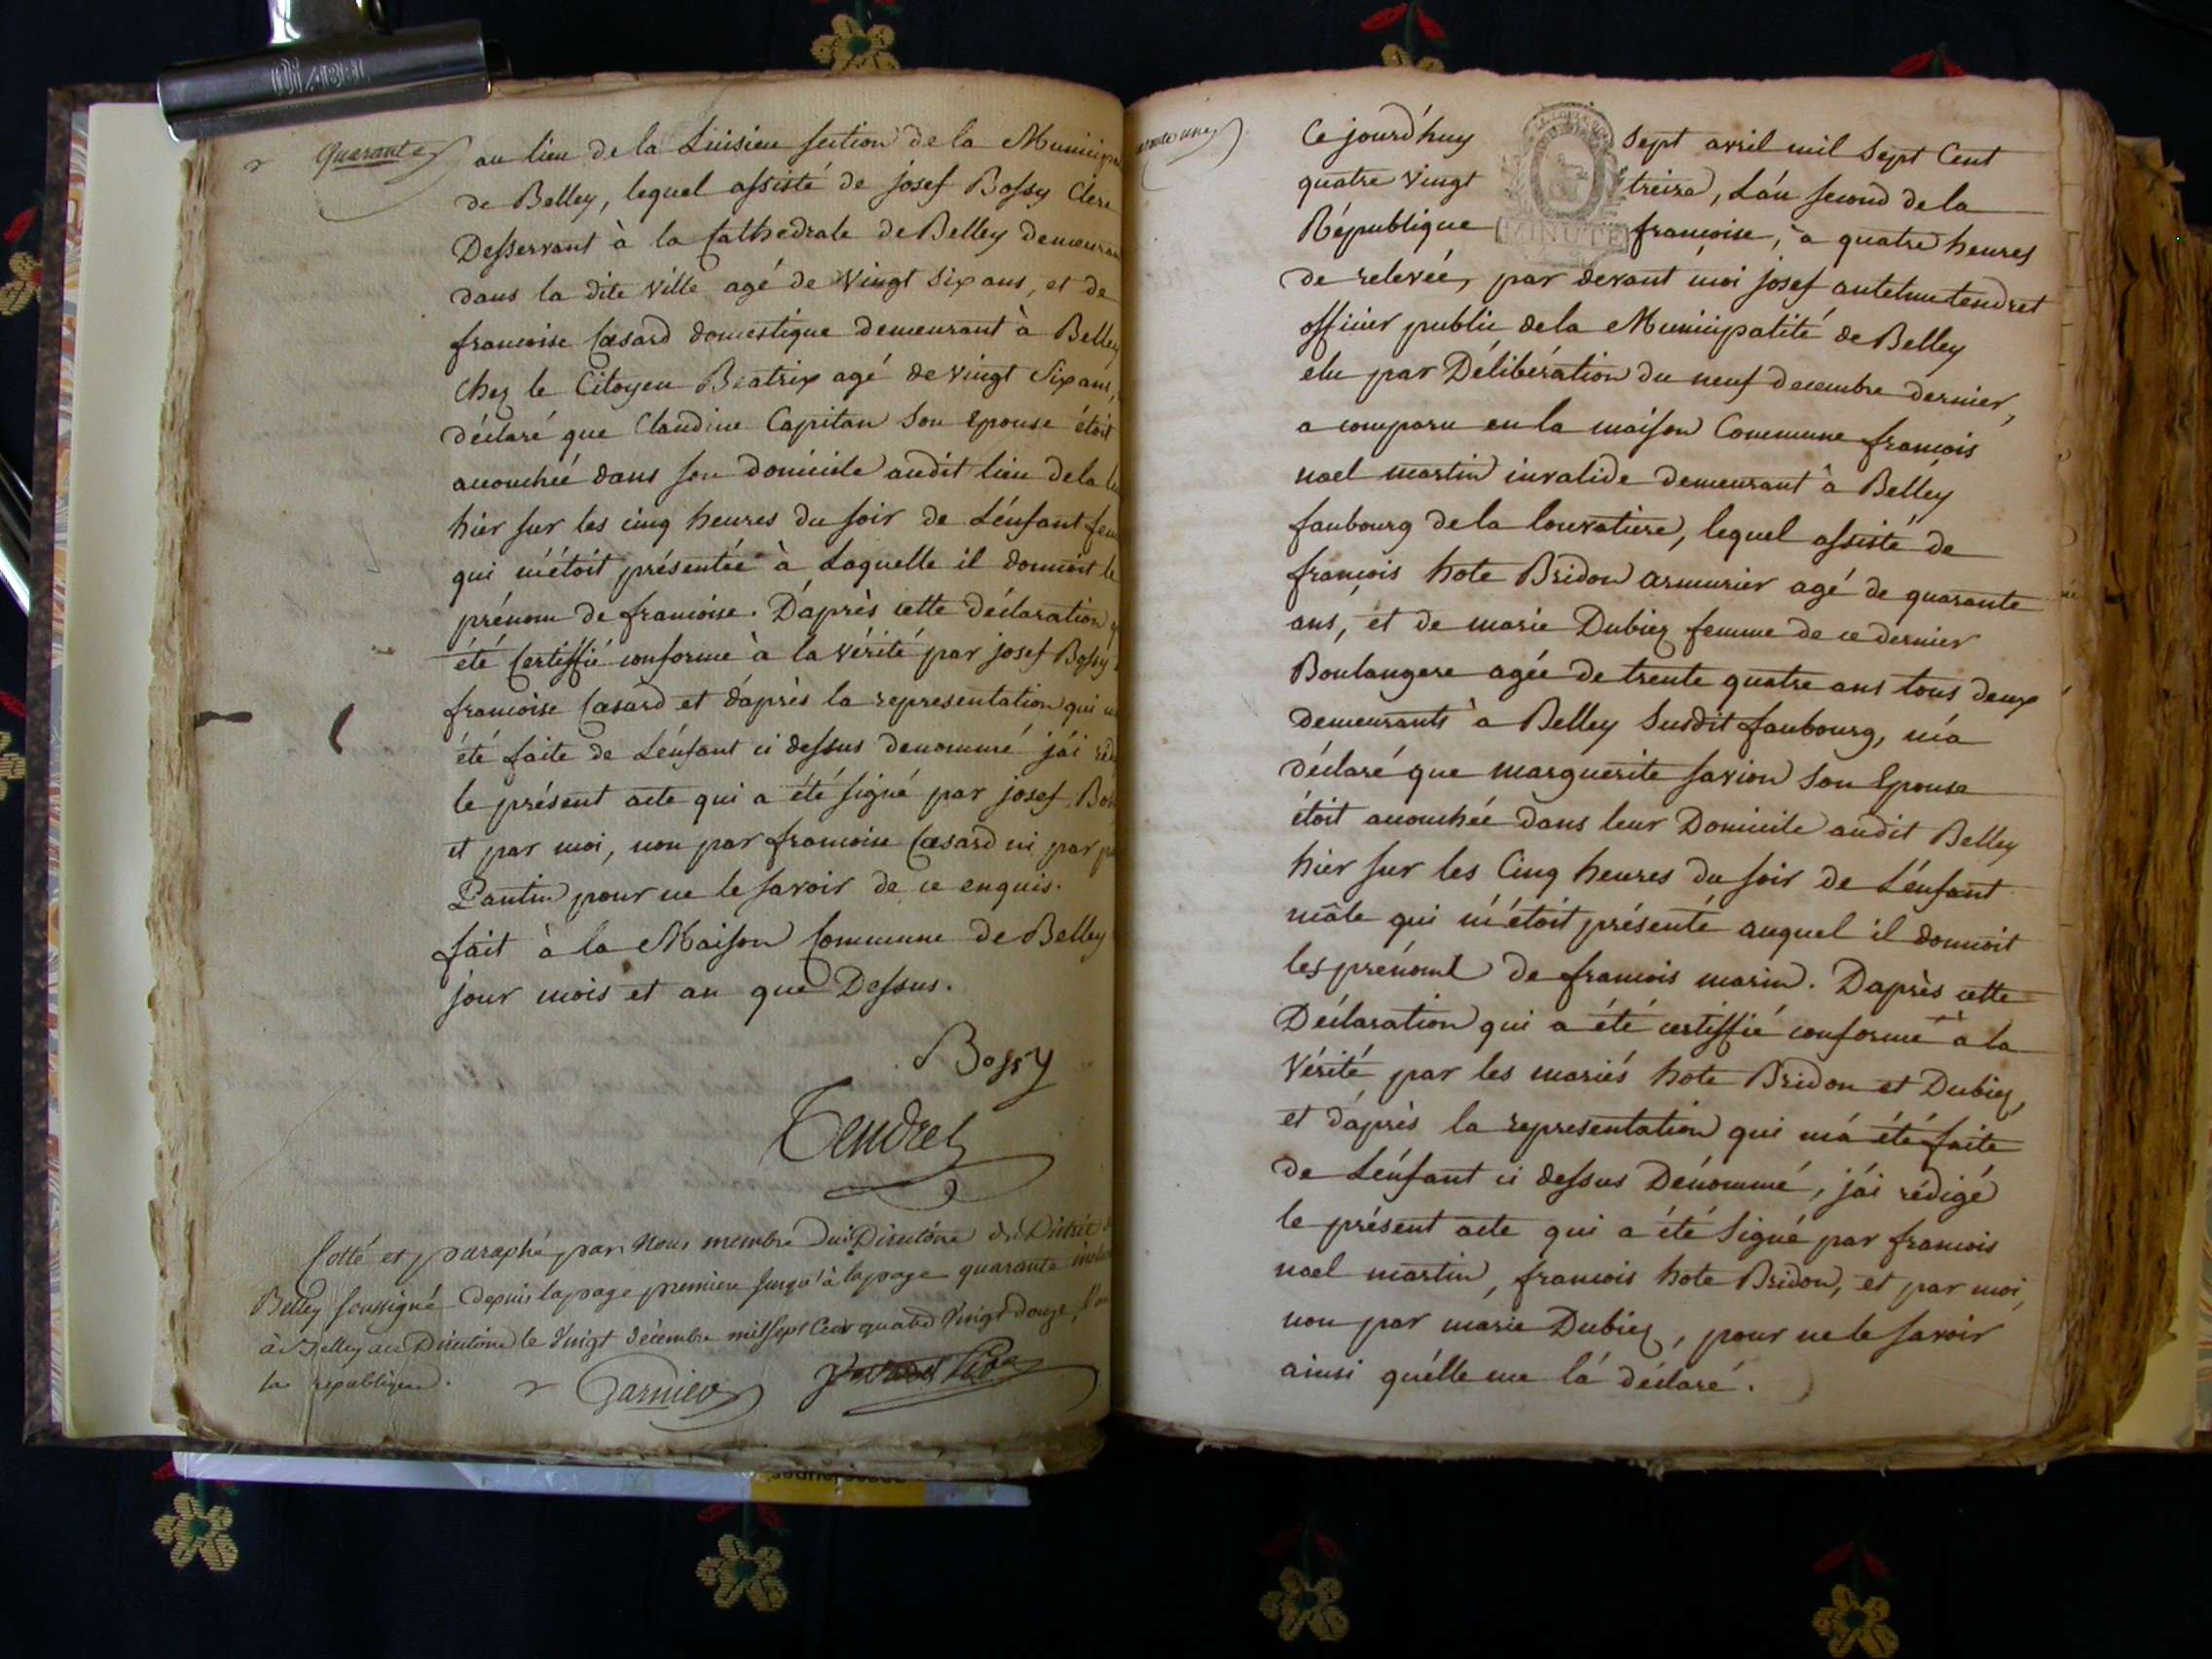 Quarante
au lieu de la Luisieu section de la Municip
de Belley, lequel assisté de josef Bossy Clerc
Desservant à la Cathedrale de Belley demeurant
dans la dite ville agé de vingt six ans, et de
francoise Cæsard domestique demeurant à Belley
chez le Citoyen Beatrix agé de vingt six ans,
déclaré que Claudine Capitan son Epouse étoit
accouchée dans son domicile audit lieu de la
hier sur les cinq heures du soir de L'énfant fem
qui m'étoit présentée à Laquelle il donnoit le
prénom de francoise. D'après cette déclaration
été Certiffié conforme à la vérité par josef Bossy
francoise Cæsard et d'après la representation qui
été faite de L'énfant ci dessus denommé j'ái réd
le présent acte qui a été signé par josef Bos
et par moi, non par francoise Cæsard ni par
Pantin pour ne le savoir de ce enquis.
fait à la Maison Commune de Belley
jour mois et an que Dessus.
Bossy
Tendret
Cotté et paraphé par Nous membre du Directoire du District
Belley soussigné depuis la page premiere jusqu'à la page quarante
à Belley au Directoire le vingt décembre mil sept Cent quatre vingt douze, l'an
la republique.
Garnier
Ce jourd'huy sept avril mil sept Cent
quatre vingt treize, L'án second de la
République francoise, à quatre heures
MINUTE
de relevée, par devant moi josef antelme tendret
officier public de la Municipalité de Belley
elu par Délibération du neuf decembre dernier,
a comparu en la maison Commune francois
nael martin invalide demeurant à Belley
faubourg de la louvatiere, lequel assisté de
francois hote Bridon armurier agé de quarante
ans, et de marie Dubiez femme de ce dernier
Boulangere agée de trente quatre ans tous deux
demeurants à Belley susdit faubourg, m'á
déclaré que marguerite savion son Epouse
étoit accouchée dans leur Domicile audit Belley
hier sur les Cinq heures du soir de L'énfant
mâle qui m'étoit présenté auquel il donnoit
les prénoms de francois marin. D'après cette
Déclaration qui a été certiffié conforme à la
Vérité par les mariés hote Bridon et Dubiez,
et d'après la representation qui m'á été faite
de L'énfant ci dessus Dénommé, j'ái rédigé
le présent acte qui a été Signé par francois
nael martin, francois hote Bridon, et par moi,
non par marie Dubiez, pour ne le savoir
ainsi qu'élle me l'á déclaré.